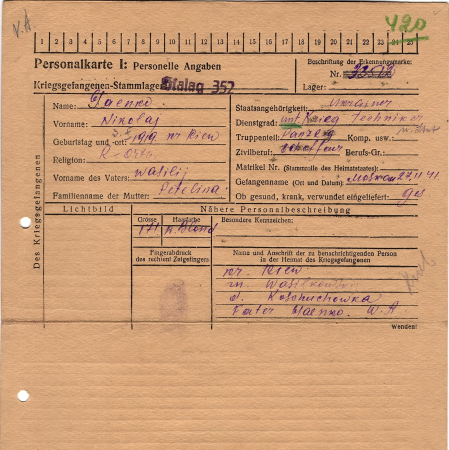 V.A
420
1 2 3 4 5 6 7 8 9 10 11 12 13 14 15 16 17 18 19 20 21 22 23 24 25
Personalkarte I: Personelle Angaben
Kriegsgefangenen-Stammlager: Stalag 352
Beschriftung der Erkennungsmarke:
Nr.
Lager:
Des Kriegsgefangenen
Name:
Vorname: Nikolas
Geburtstag und -ort: 1919 nr Kiew
Religion: R-Orth
Vorname des Vaters: Wasilij
Familienname der Mutter: Petelina
Staatsangehörigkeit:
Dienstgrad: Krieg Techniker
Truppenteil: Panzerg Komp. usw.:
Zivilberuf: Berufs-Gr.:
Matrikel Nr. (Stammrolle des Heimatstaates):
Gefangenname (Ort und Datum): Moskau 27.11.41
Ob gesund, krank, verwundet eingeliefert: ges
Lichtbild
Nähere Personalbeschreibung
Grösse
Haarfarbe
Besondere Kennzeichen:
171 Blond
Fingerabdruck
des rechten Zeigefingers
Name und Anschrift der zu benachrichtigenden Person
in der Heimat des Kriegsgefangenen
Kiew
d. Koschuchowka
Vater W. A
Wenden!